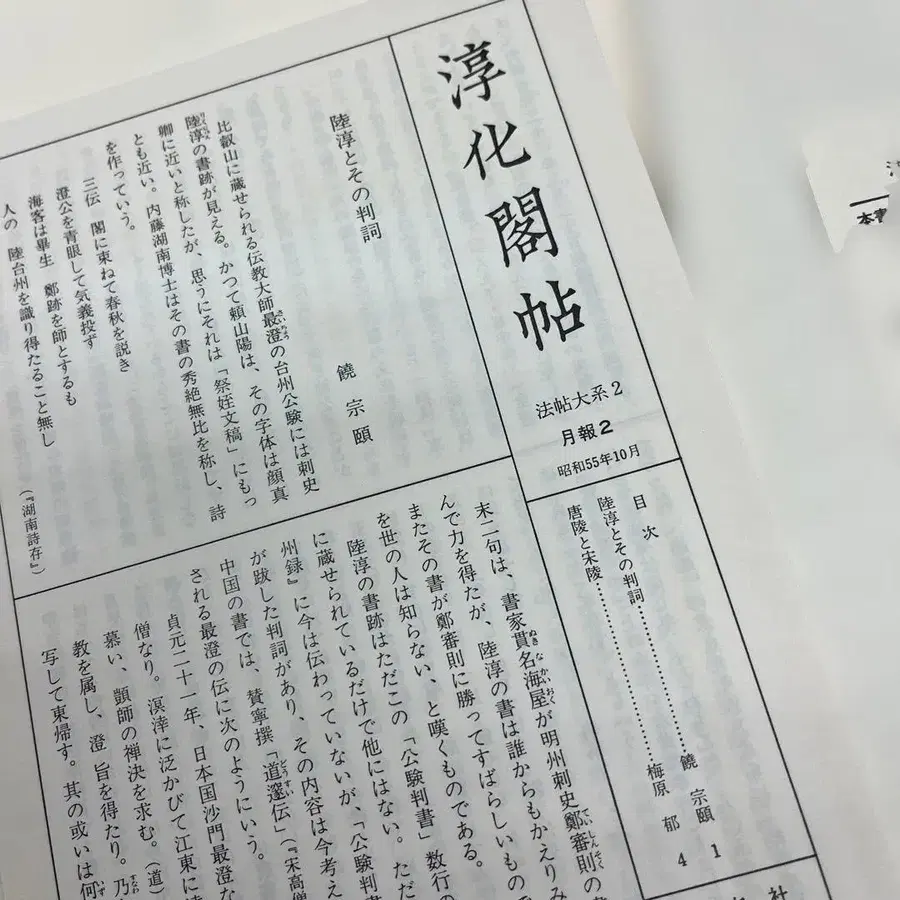 淳化閣帖
法帖大系2
月報2
昭和55年10月
目次
陸淳とその判詞……………饒 宗頤 1
唐陵と宋陵……………梅原 郁 4
陸淳とその判詞
饒 宗頤
比叡山に蔵せられる伝教大師最澄の台州公験には刺史
陸淳の書跡が見える。かつて頼山陽は、その字体は顔真
卿に近いと称したが、思うにそれは「祭姪文稿」にもっ
とも近い。内藤湖南博士はその書の秀絶無比を称し、詩
を作っていう。
三伝 閣に束ねて春秋を説き
澄公を青眼して気義投ず
海客は畢生 鄭跡を師とするも
人の 陸台州を識り得たること無し
(『湖南詩存』)
末二句は、書家貫名海屋が明州刺史鄭審則の
んで力を得たが、陸淳の書は誰からもかえりみ
またその書が鄭審則に勝ってすばらしいもの
を世の人は知らない、と嘆くものである。
陸淳の書跡はただこの「公験判書」数行の
に蔵せられているだけで他にはない。ただ
州録』に今は伝わっていないが、「公験判書
が跋した判詞があり、その内容は今考え
中国の書では、賛寧撰「道邃伝」(『宋高僧
される最澄の伝に次のようにいう。
貞元二十一年、日本国沙門最澄な
僧なり。溟涬に泛かびて江東に
慕い、顗師の禅決を求む。(道)
教を属し、澄 旨を得たり。乃
写して東帰す。其の或いは何
社
本書